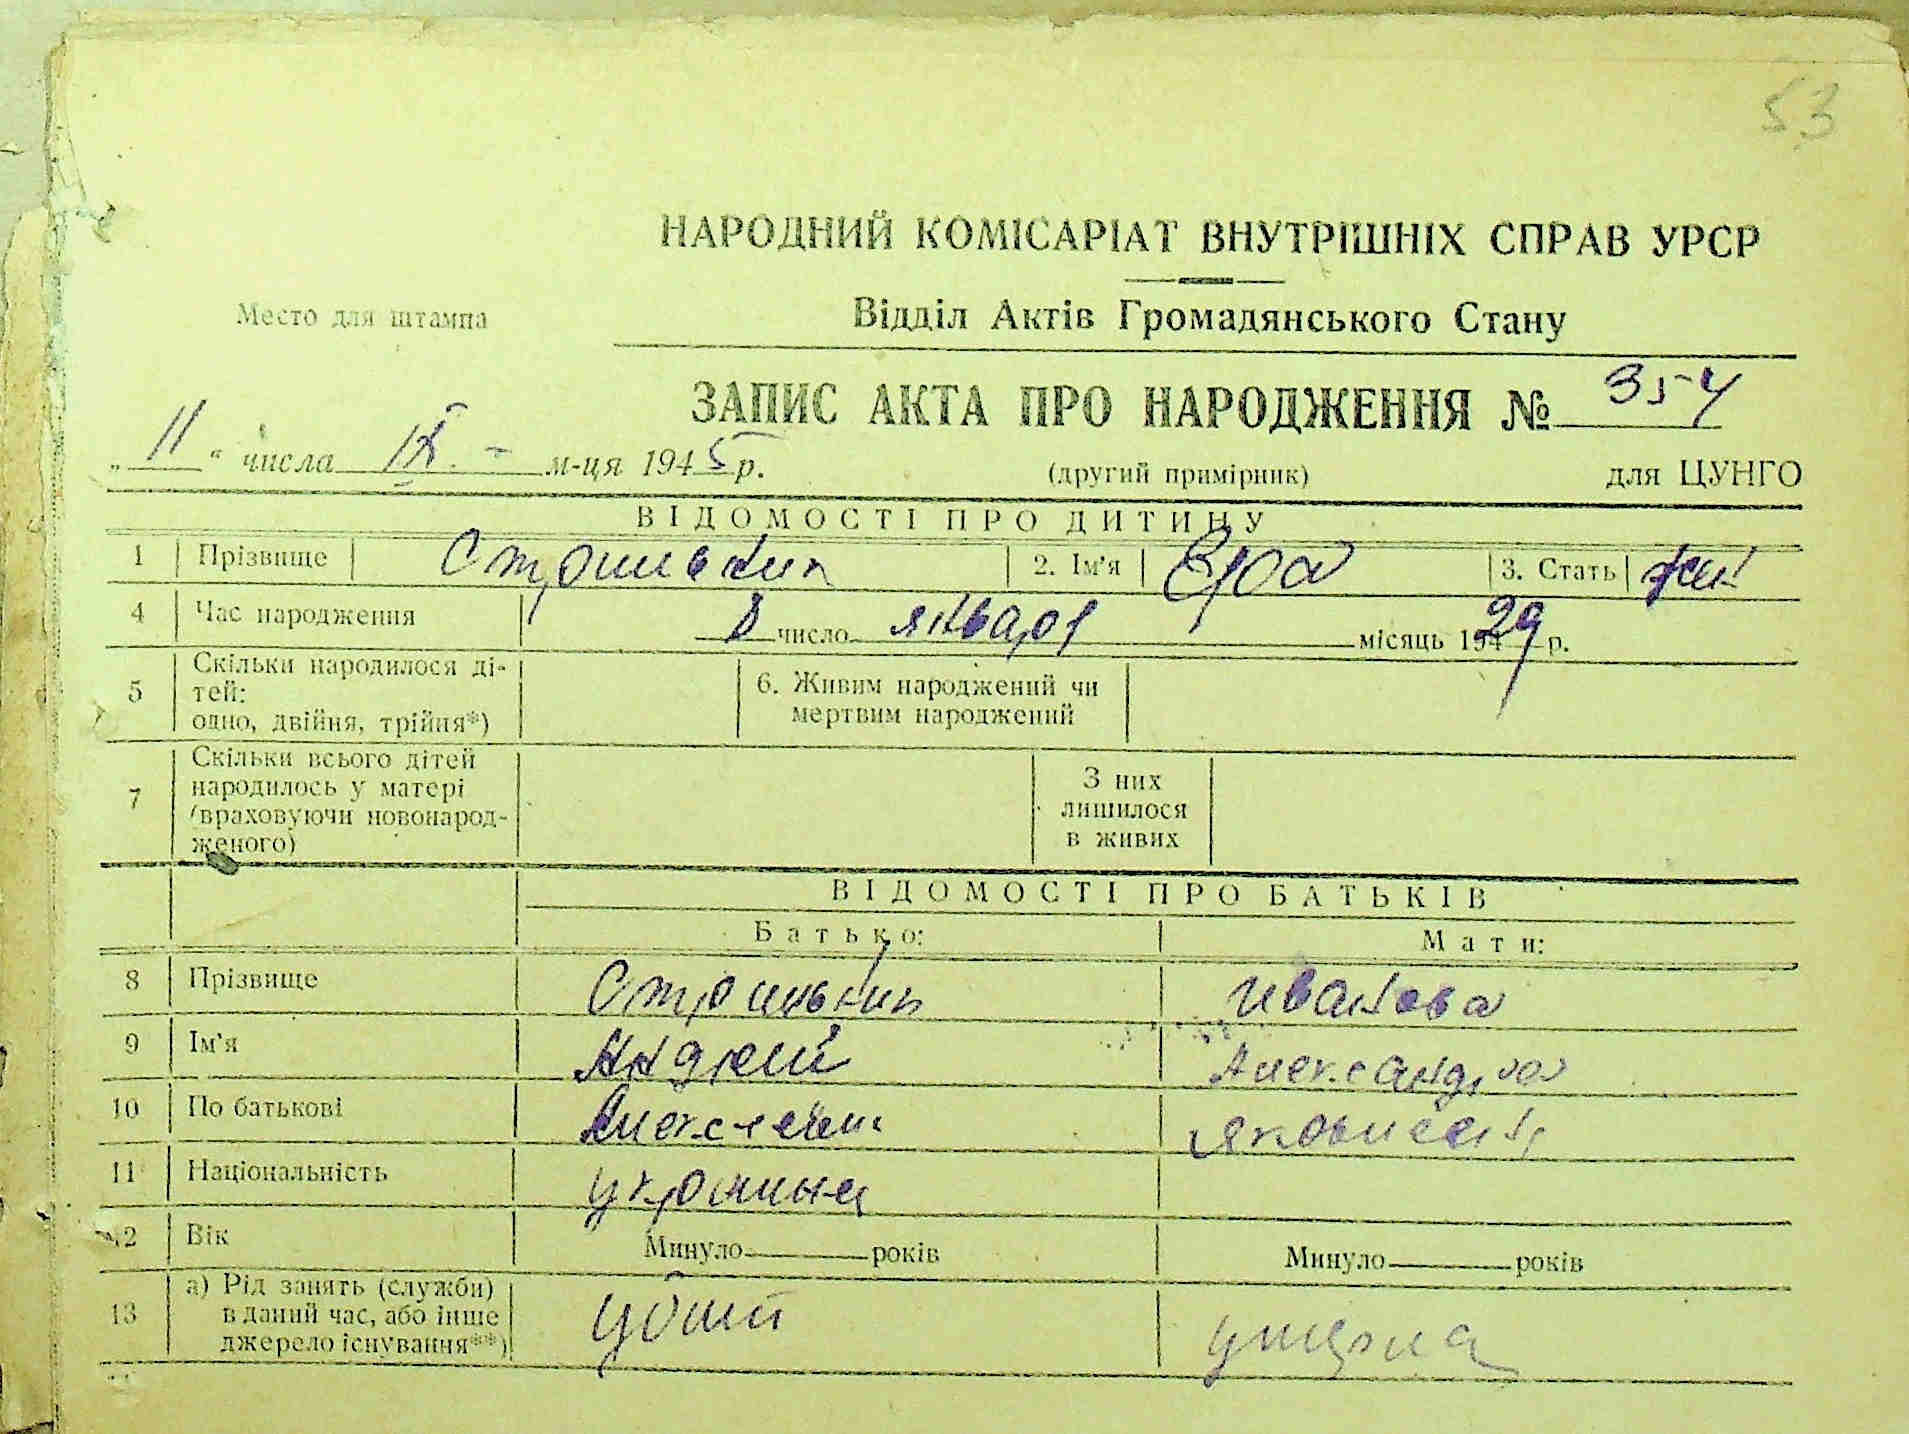 53
НАРОДНИЙ КОМІСАРІАТ ВНУТРІШНІХ СПРАВ УРСР
Место для штампа
Відділ Актів Громадянського Стану
ЗАПИС АКТА ПРО НАРОДЖЕННЯ № 354
„11“ числа IX. - м-ця 1945 р.
(другий примірник) для ЦУНГО
ВІДОМОСТІ ПРО ДИТИНУ
1 Прізвище 2. Ім'я 3. Стать жен
4 Час народження 8 число января місяць 1929 р.
5 Скільки народилося ді-
тей:
одно, двійня, трійня*)
6. Живим народжений чи
мертвим народжений
7 Скільки всього дітей
народилось у матері
(враховуючи новонарод-
женого)
З них
лишилося
в живих
ВІДОМОСТІ ПРО БАТЬКІВ
Батько: Мати:
8 Прізвище Иванова
9 Ім'я Андрей Александра
10 По батькові
11 Національність
12 Вік Минуло ррків Минуло років
13 а) Рід занять (служби)
в даний час, або інше
джерело існування**)
убит умерла